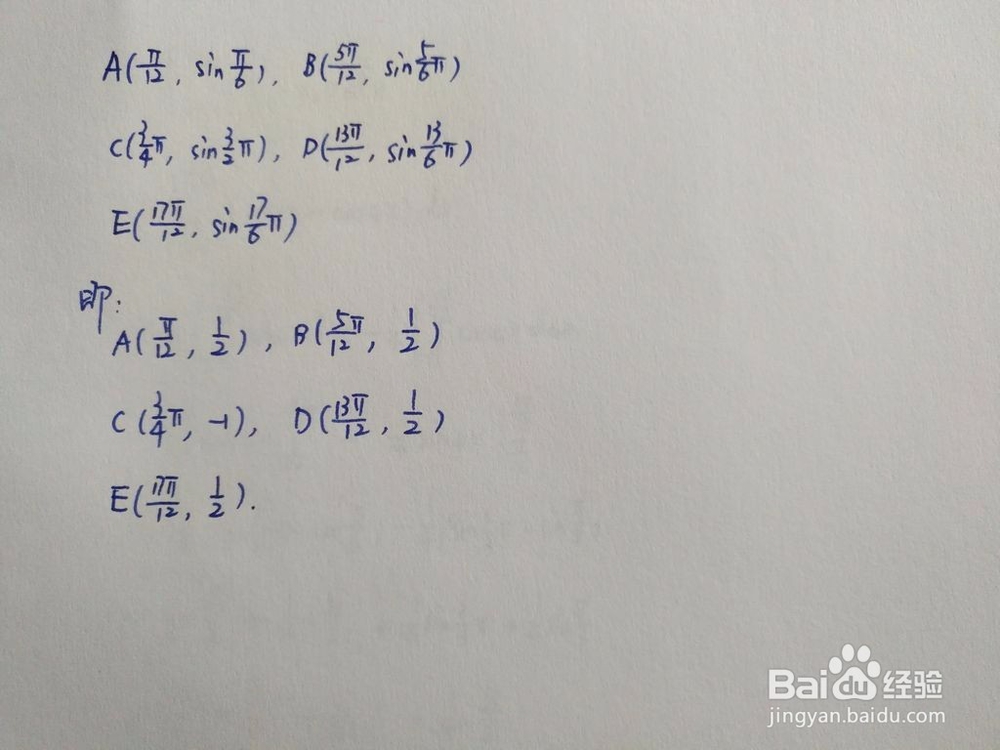 A(π/12, sin π/6), B(5π/12, sin 5/6 π)
C(3/4 π, sin 3/2 π), D(13π/12, sin 13/6 π)
E(17π/12, sin 17/6 π)
即:
A(π/12, 1/2), B(5π/12, 1/2)
C(3/4 π, -1), D(13π/12, 1/2)
E(17π/12, 1/2).
Baidu 经验
jingyan.baidu.com